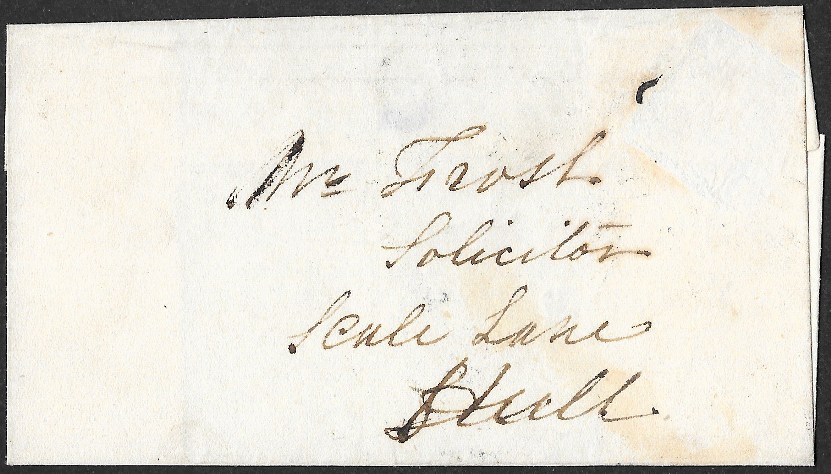 Mr Frost
Solicitor
Scale Lane
Hull